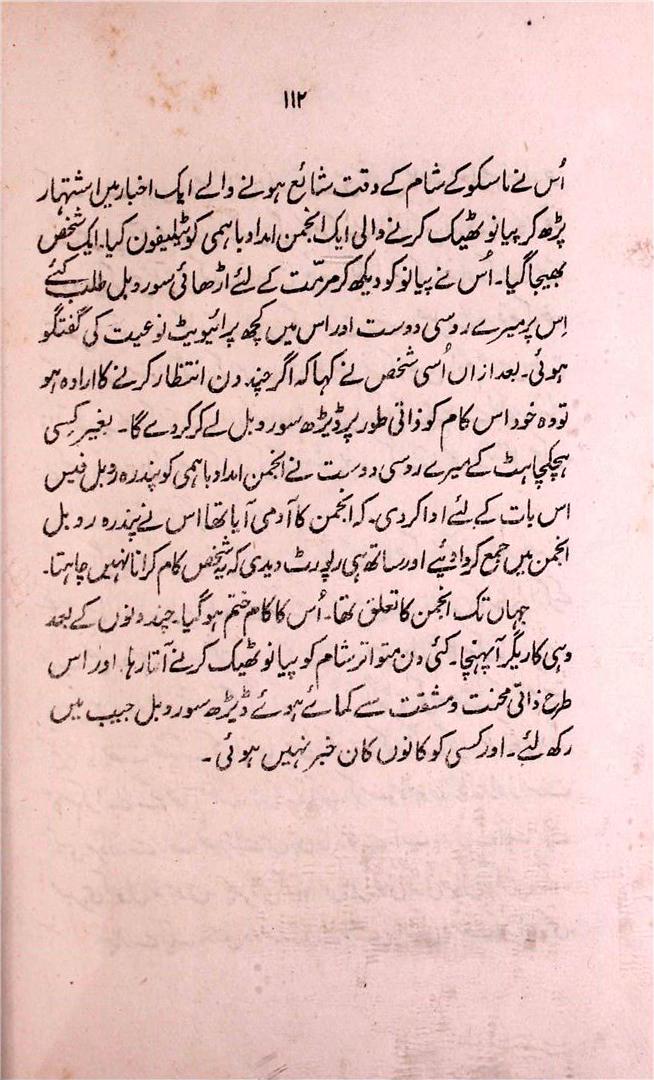 ۱۱۲
اُس نے ماسکو کے شام کے وقت شائع ہونے والے ایک اخبار میں اشتہار
پڑھ کر پیانو ٹھیک کرنے والی ایک انجمن امداد باہمی کو ٹیلیفون کیا۔ ایک شخص
بھیجا گیا۔ اُس نے پیانو کو دیکھ کر مرمّت کے لئے اڑھائی سو روبل طلب کئے
اِس پر میرے روسی دوست اور اس میں کچھ پرائیویٹ نوعیت کی گفتگو
ہوئی۔ بعد ازاں اُسی شخص نے کہا کہ اگر چند دن انتظار کرنے کا ارادہ ہو
تو وہ خود اس کام کو ذاتی طور پر ڈیڑھ سو روبل لے کر کر دے گا۔ بغیر کِسی
ہچکچاہٹ کے میرے روسی دوست نے انجمن امداد باہمی کو پندرہ روبل فیس
اس بات کے لئے ادا کر دی۔ کہ انجمن کا آدمی آیا تھا اس نے پندرہ روبل
انجمن میں جمع کروا دیئے اور ساتھ ہی رپورٹ دیدی کہ یہ شخص کام کرانا نہیں چاہتا۔
جہاں تک انجمن کا تعلق تھا۔ اُس کا کام ختم ہو گیا۔ چند دنوں کے بعد
وہی کاریگر آ پہنچا۔ کئی دن متواتر شام کو پیانو ٹھیک کرنے آتا رہا۔ اور اس
طرح ذاتی محنت و مشقت سے کمائے ہوئے ڈیڑھ سو روبل جیب میں
رکھ لئے۔ اور کسی کو کانوں کان خبر نہیں ہوئی۔